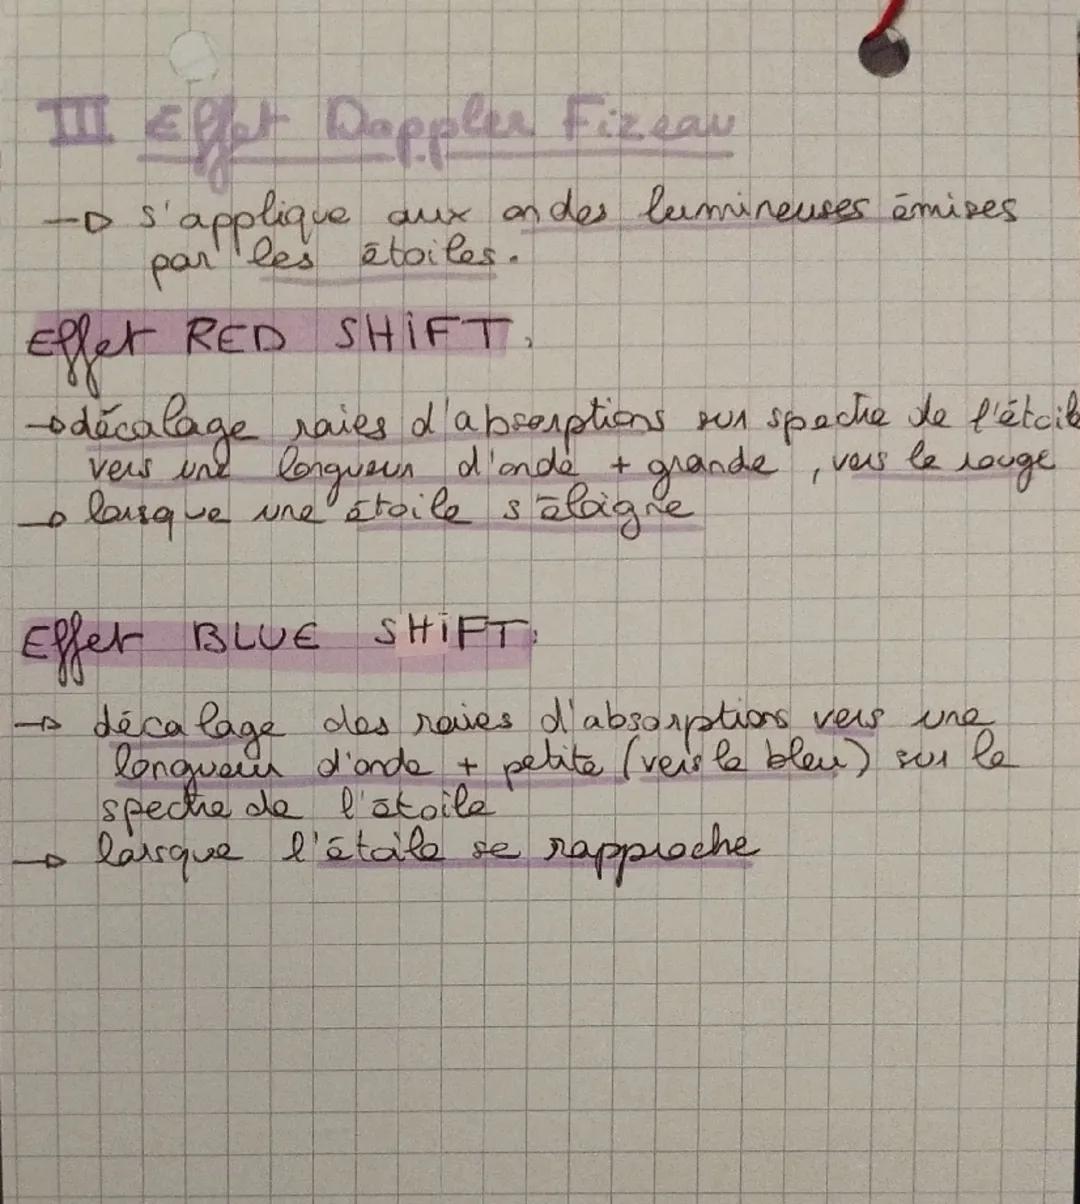 III Effet Doppler Fizeau
→ s'applique aux ondes lumineuses émises
par les étoiles.
Effet RED SHIFT:
→ décalage raies d'absorptions sur spectre de l'étoile
vers une longueur d'onde + grande, vers le rouge
→ lorsque une étoile s'éloigne
Effet BLUE SHIFT:
→ décalage des raies d'absorptions vers une
longueur d'onde + petite (vers le bleu) sur le
spectre de l'étoile
→ lorsque l'étoile se rapproche